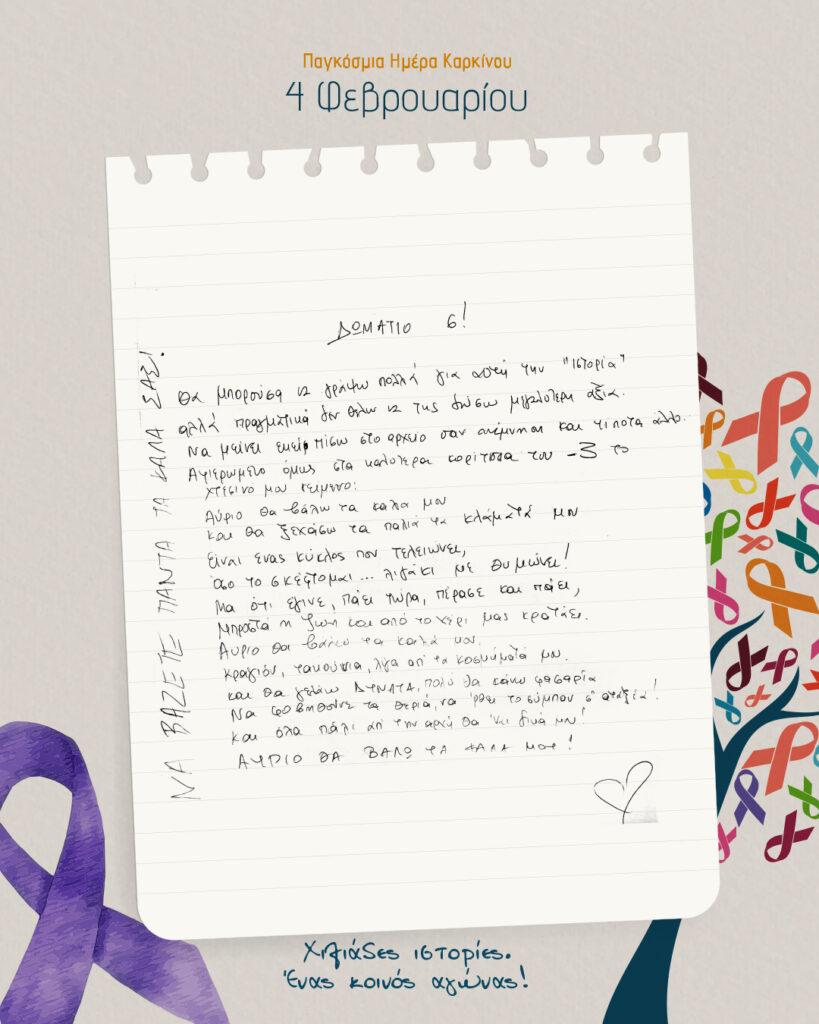 Παγκόσμια Ημέρα Καρκίνου
4 Φεβρουαρίου
ΔΩΜΑΤΙΟ 6!
Θα μπορούσα να γράψω πολλά για αυτή την "ιστορία"
αλλά πραγματικά δεν θέλω να της δώσω μεγαλύτερη αξία.
Να μείνει εκεί πίσω στο αρχείο σαν ανάμνηση και τίποτα άλλο.
Αφιερωμένο όμως στα καλύτερα κορίτσια του -3 το
χτεσινό μου κείμενο:
Αύριο θα βάλω τα καλά μου
και θα ξεχάσω τα παλιά τα κλάματά μου
είναι ένας κύκλος που τελειώνει,
όσο το σκέφτομαι... λιγάκι με θυμώνει!
Μα ότι έγινε, πάει τώρα, πέρασε και πάει,
Μπροστά η ζωή και από το χέρι μας κρατάει.
Αύριο θα βάλω τα καλά μου.
κραγιόν, τακούνια, λίγα απ' τα κοσμήματά μου.
και θα γελάω ΔΥΝΑΤΑ, πολύ θα κάνω φασαρία
Να φοβηθούνε τα θεριά, να 'ρθει το σύμπαν σ' αταξία!
και όλα πάλι απ' την αρχή θα 'ναι δικά μου!
ΑΥΡΙΟ ΘΑ ΒΑΛΩ ΤΑ ΚΑΛΑ ΜΟΥ!
ΝΑ ΒΑΖΕΤΕ ΠΑΝΤΑ ΤΑ ΚΑΛΑ ΣΑΣ!
Χιλιάδες ιστορίες.
Ένας κοινός αγώνας!